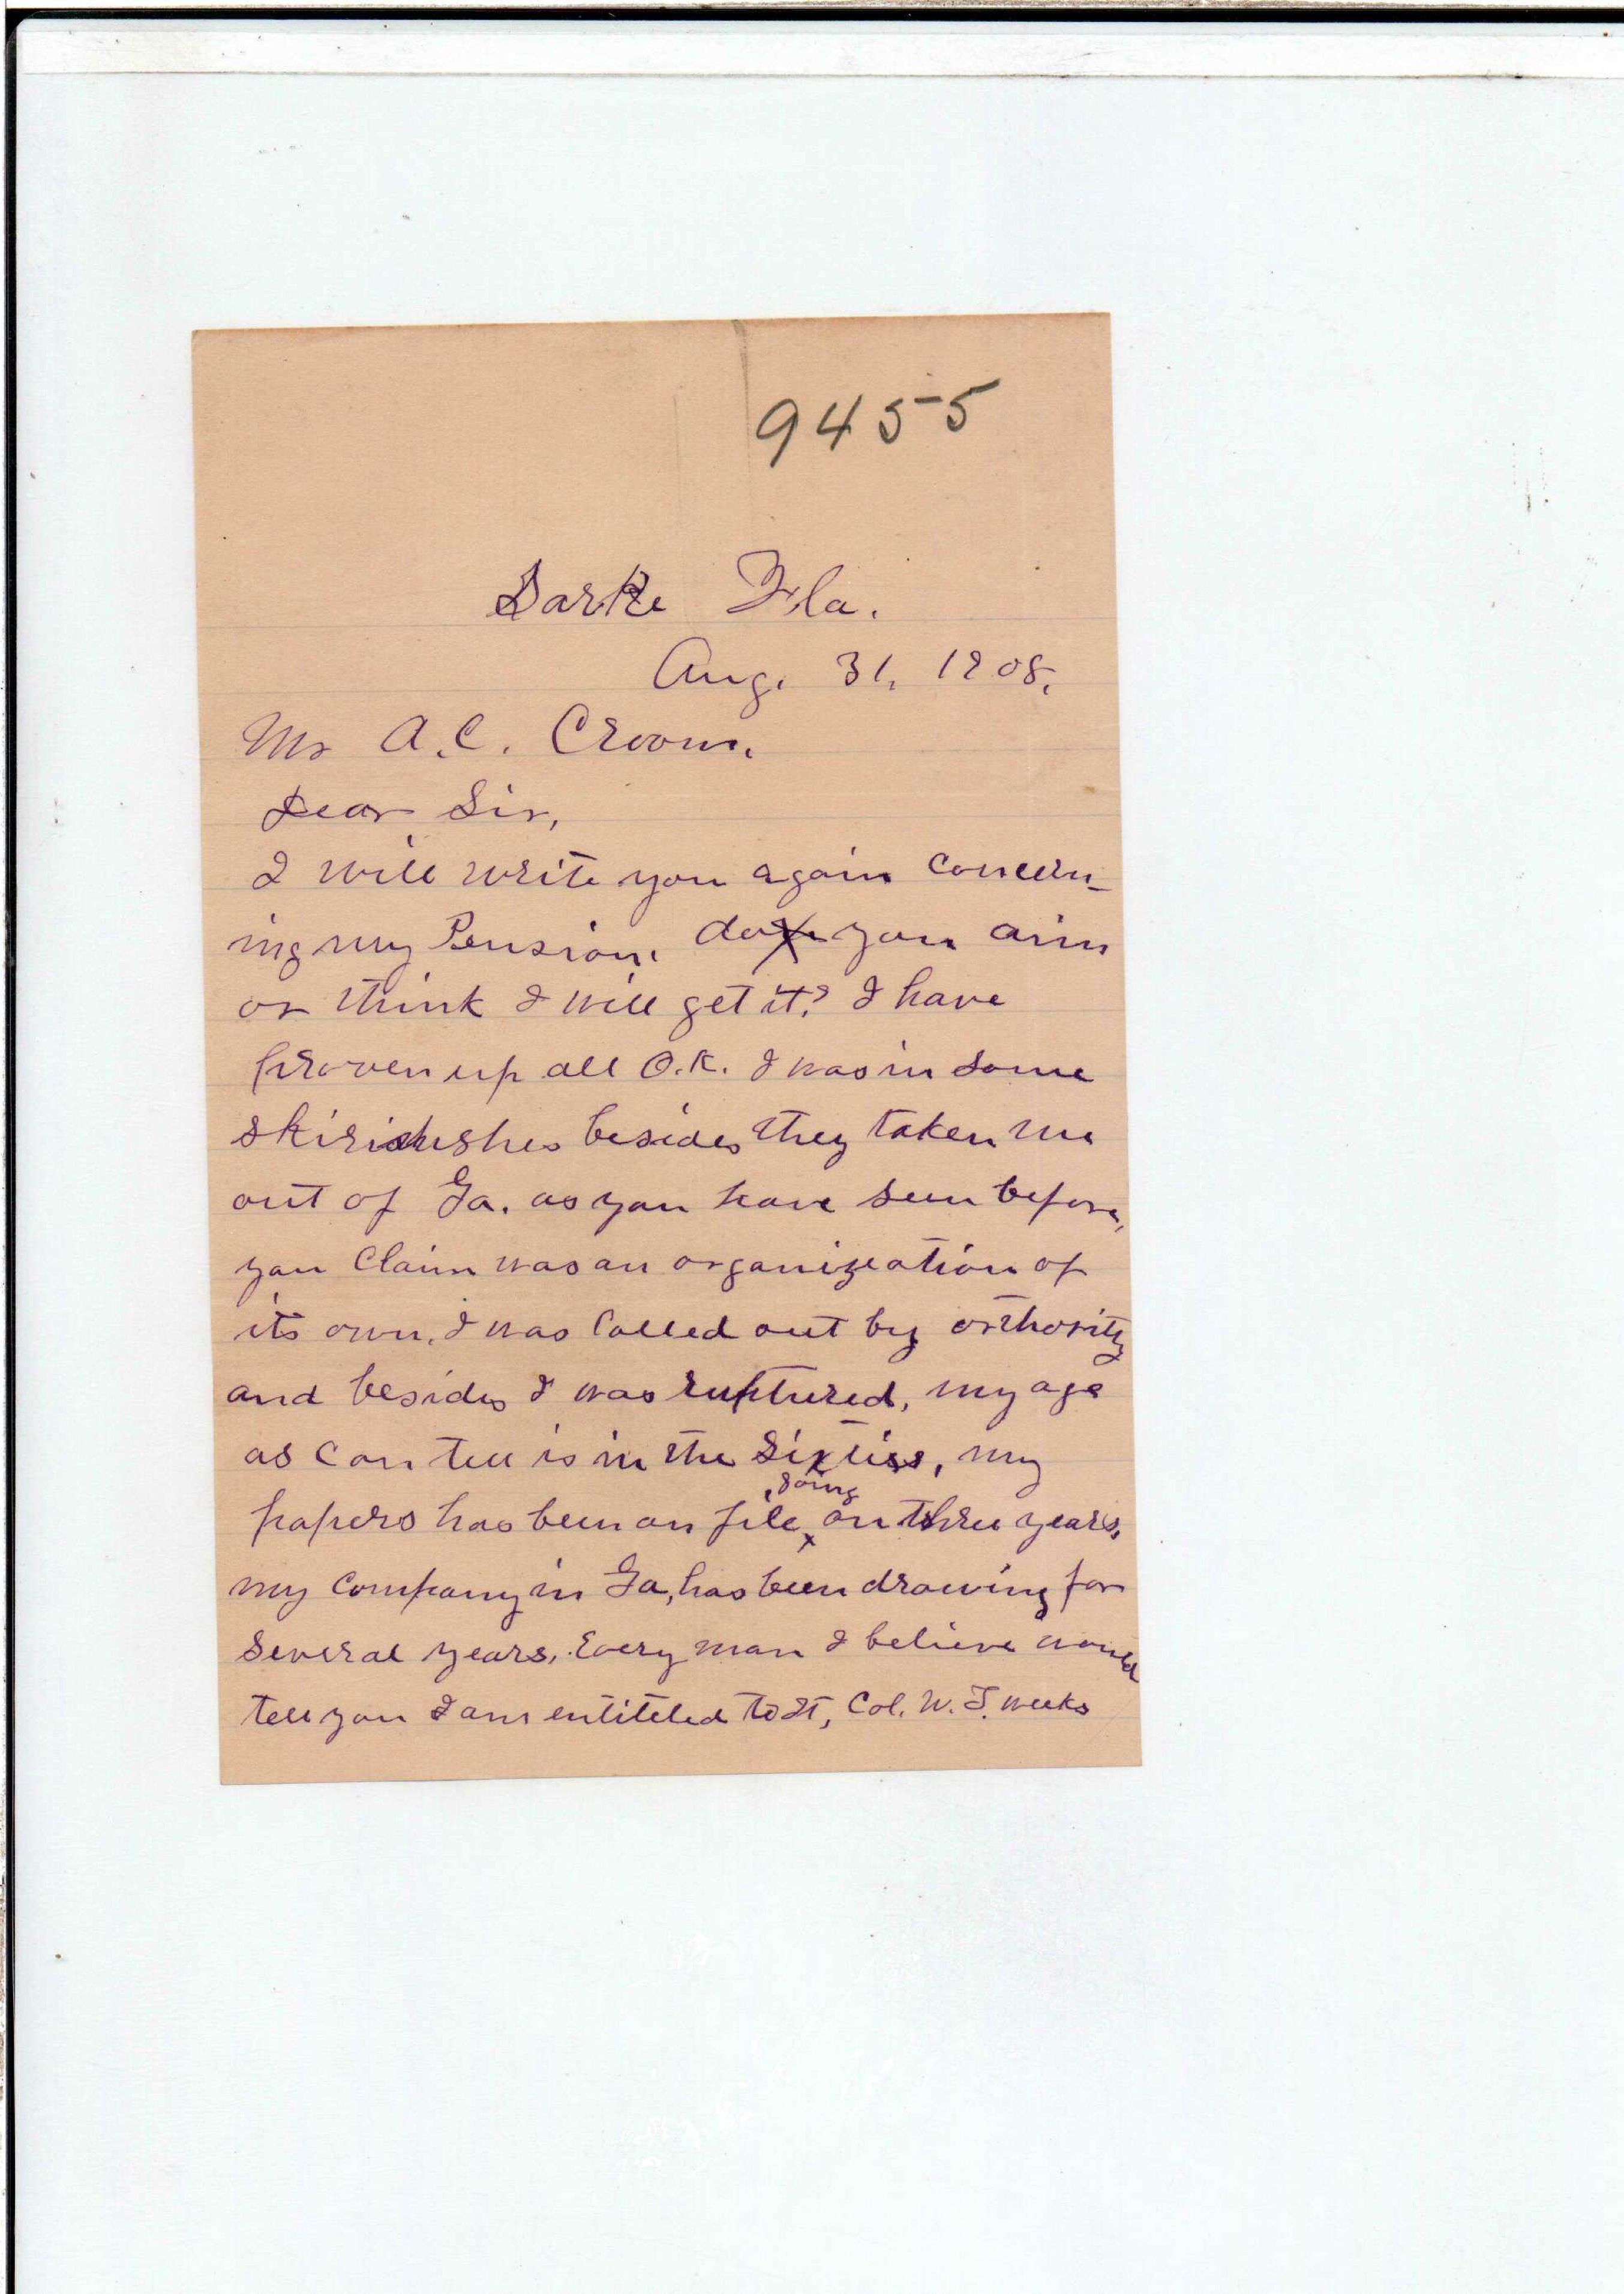 9455
Darke Fla.
Aug. 31, 1908.
Mr A.C. Croom.
Dear Sir,
I will write you again concern-
ing my Pension, do you aim
or think I will get it? I have
proven up all O.K. I was in some
skirishshes besides they taken me
out of Ga. as you have seen before,
you Claim was an organization of
its own, I was Called out by orthority
and besides I was ruptured, my age
as Can tell is in the Sixties, my
papers has been on file going on three years,
my Company in Ga, has been drawing for
Several years, Every man I believe would
tell you I am entitled to It, Col. W. T. Weeks